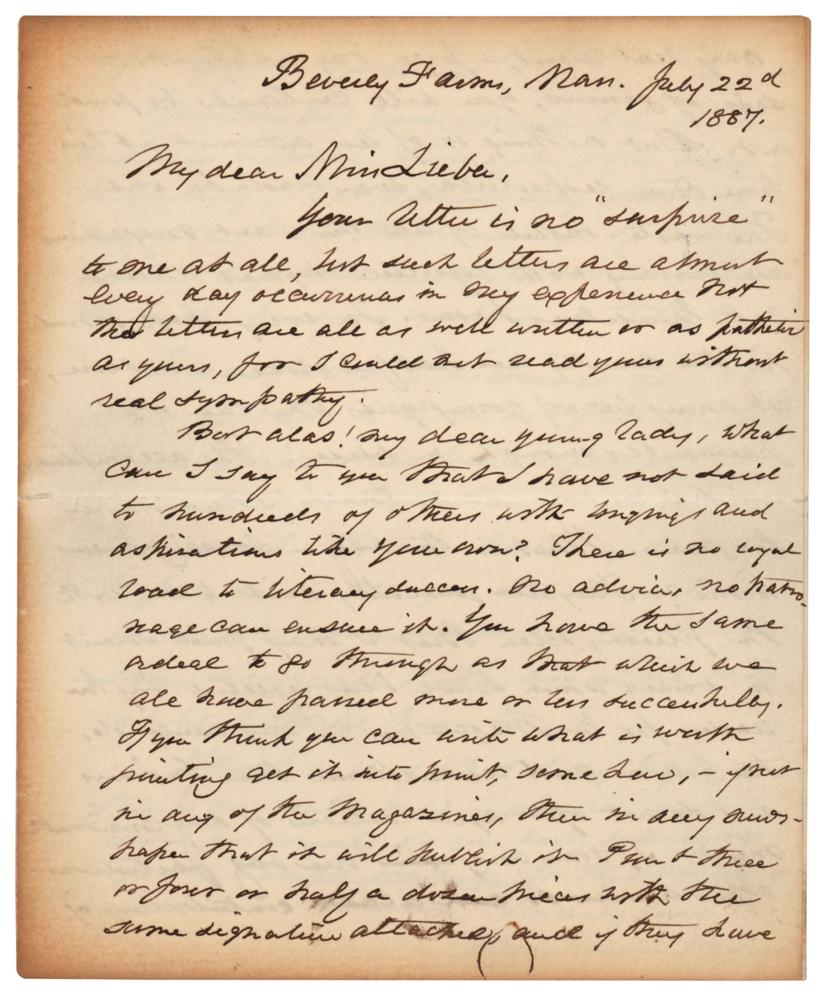 Beverly Farms, Mass. July 22d
1887.
My dear Miss Lieber,
Your letter is no "surprise"
to me at all, but such letters are almost
every day occurrences in my experience Not
that letters are all as well written or as pathetic
as yours, for I could not read yours without
real sympathy.
But alas! my dear young lady, what
can I say to you that I have not said
to hundreds of others with longings and
aspirations like your own? There is no royal
road to literary success. No advice, no patro-
nage can ensure it. You have the same
ordeal to go through as that which we
all have passed more or less successfully.
If you think you can write what is worth
printing get it into print, some how, – if not
in any of the Magazines, then in any news-
paper that it will publish it Print three
or four or half a dozen pieces with the
same signature attached, and if they have